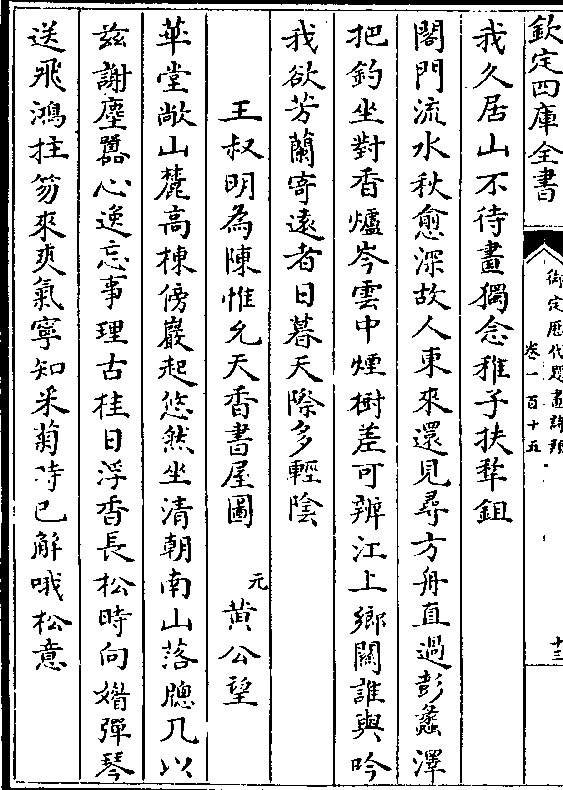 欽定四庫全書
御定歷代題畫詩類
卷一百十五
十三
我久居山不待畫獨念稚子扶犂鉏
閣門流水秋愈深故人東來還見尋方舟直過彭蠡澤
把釣坐對香爐岑雲中煙樹差可辨江上鄉關誰與吟
我欲芳蘭寄遠者日暮天際多輕陰
王叔明為陳惟允天香書屋圖 元 黃公望
華堂敞山麓高棟傍巖起悠然坐清朝南山落牕几以
兹謝塵囂心逸忘事理古桂日浮香長松時向㛰彈琴
送飛鴻拄笏來爽氣寧知采菊時已解哦松意